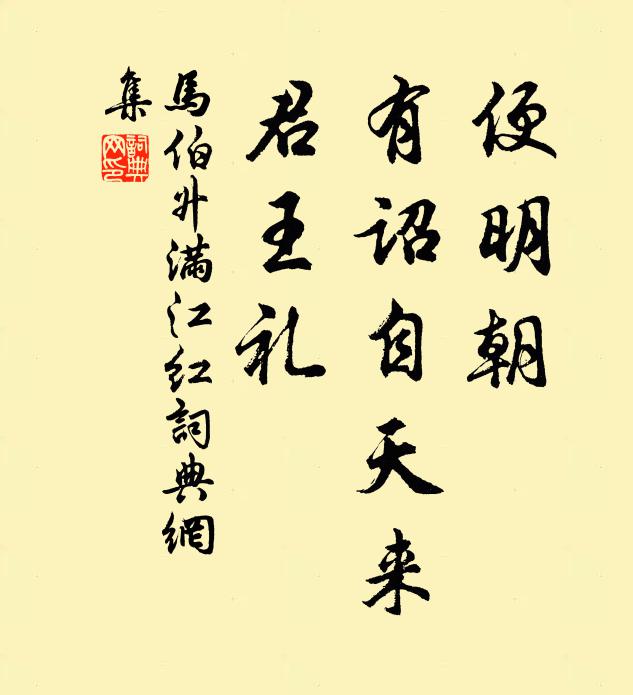 便明朝
有诏自天来
君王礼
馬伯升滿江红詞典網
集
詞典网印